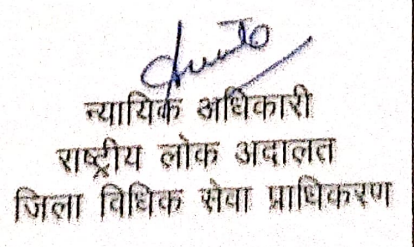 न्यायिक अधिकारी
राष्ट्रीय लोक अदालत
जिला विधिक सेवा प्राधिकरण